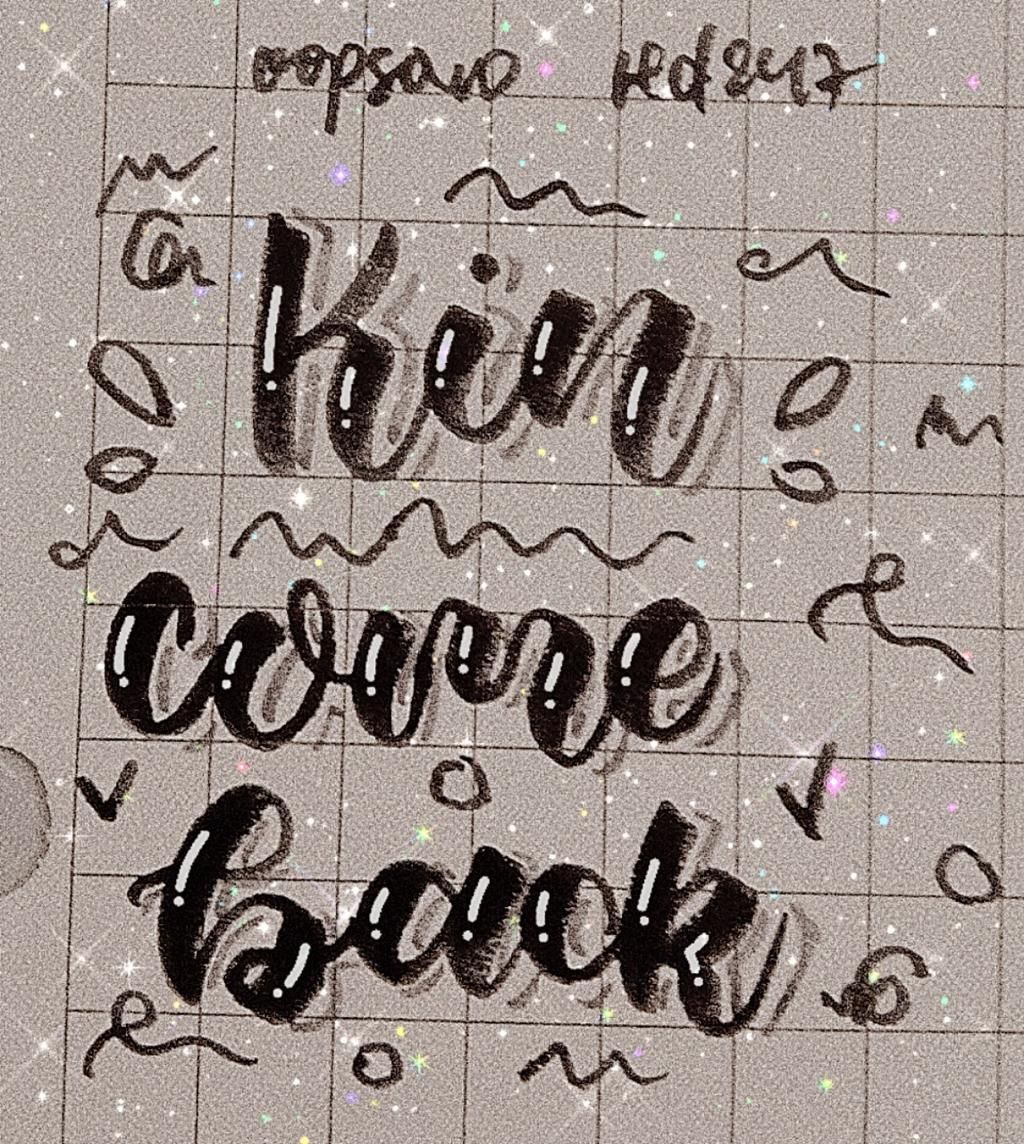 oopsavo red847
Kin
come
back